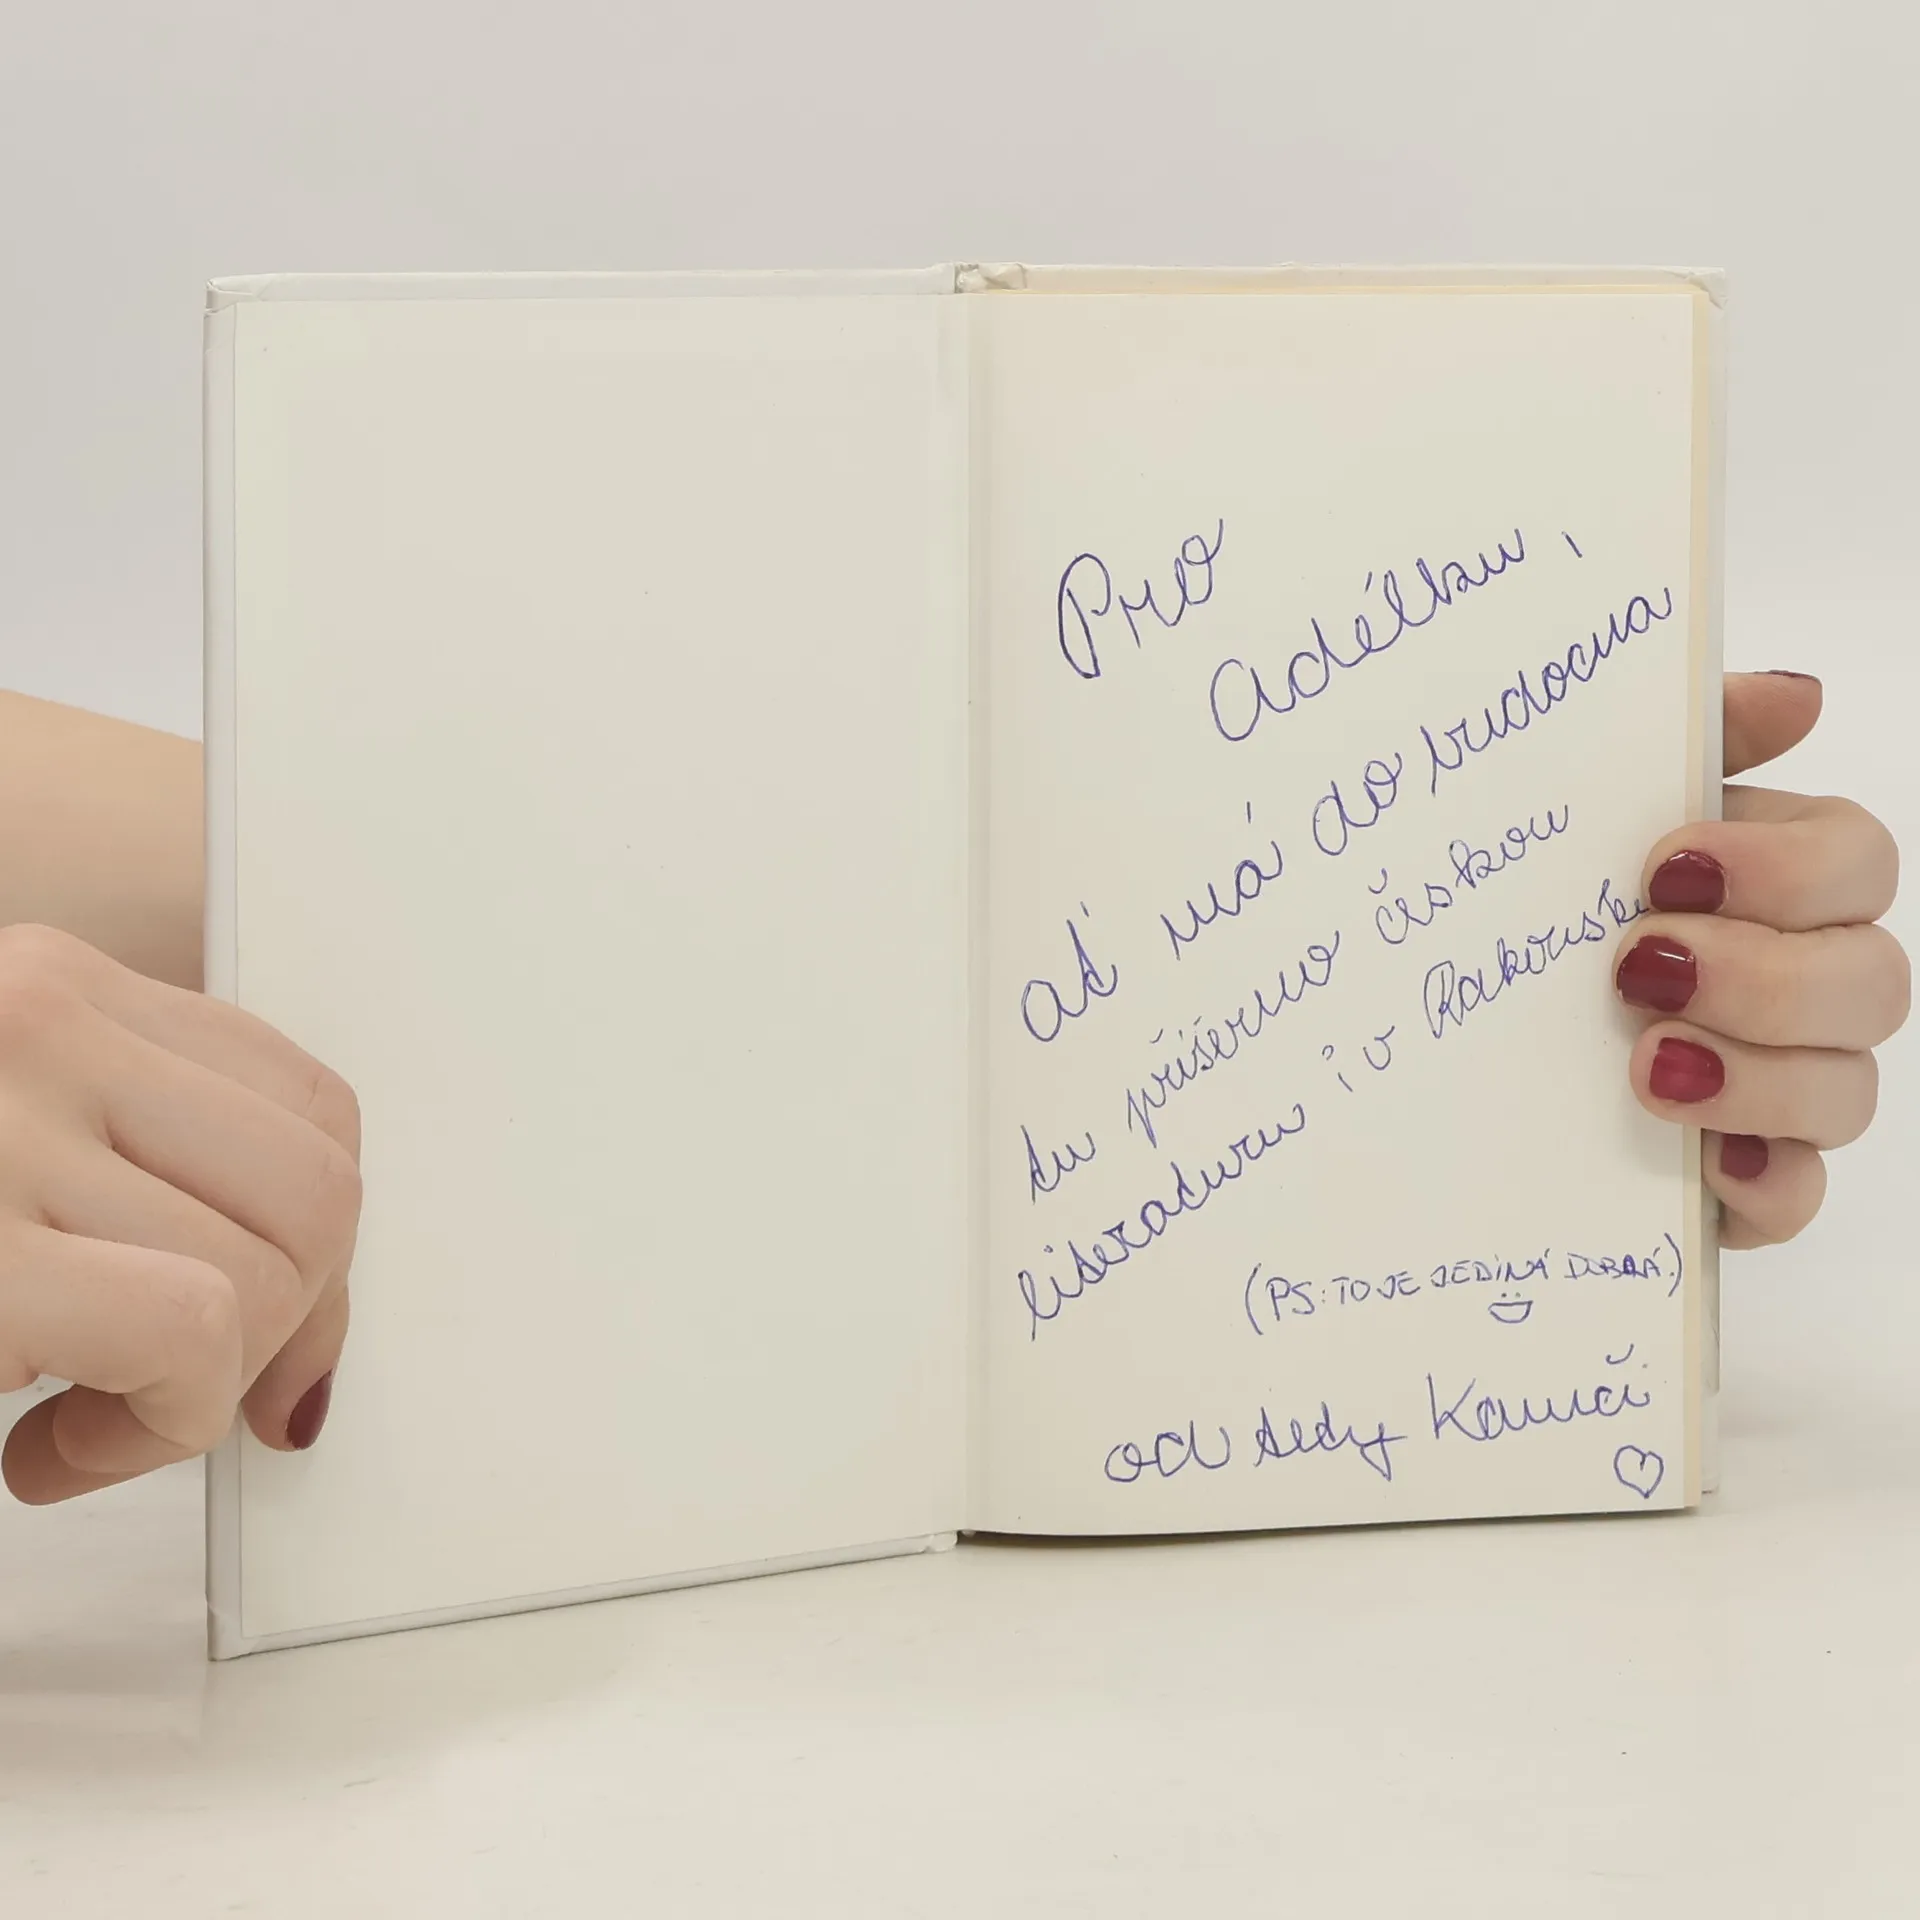 Pro
Adélku,
ať má do budoucna
tu příšernou českou
literaturu i v Rakousku
(PS: TO JE JEDINÁ DOBRÁ.)
od tety Kamči